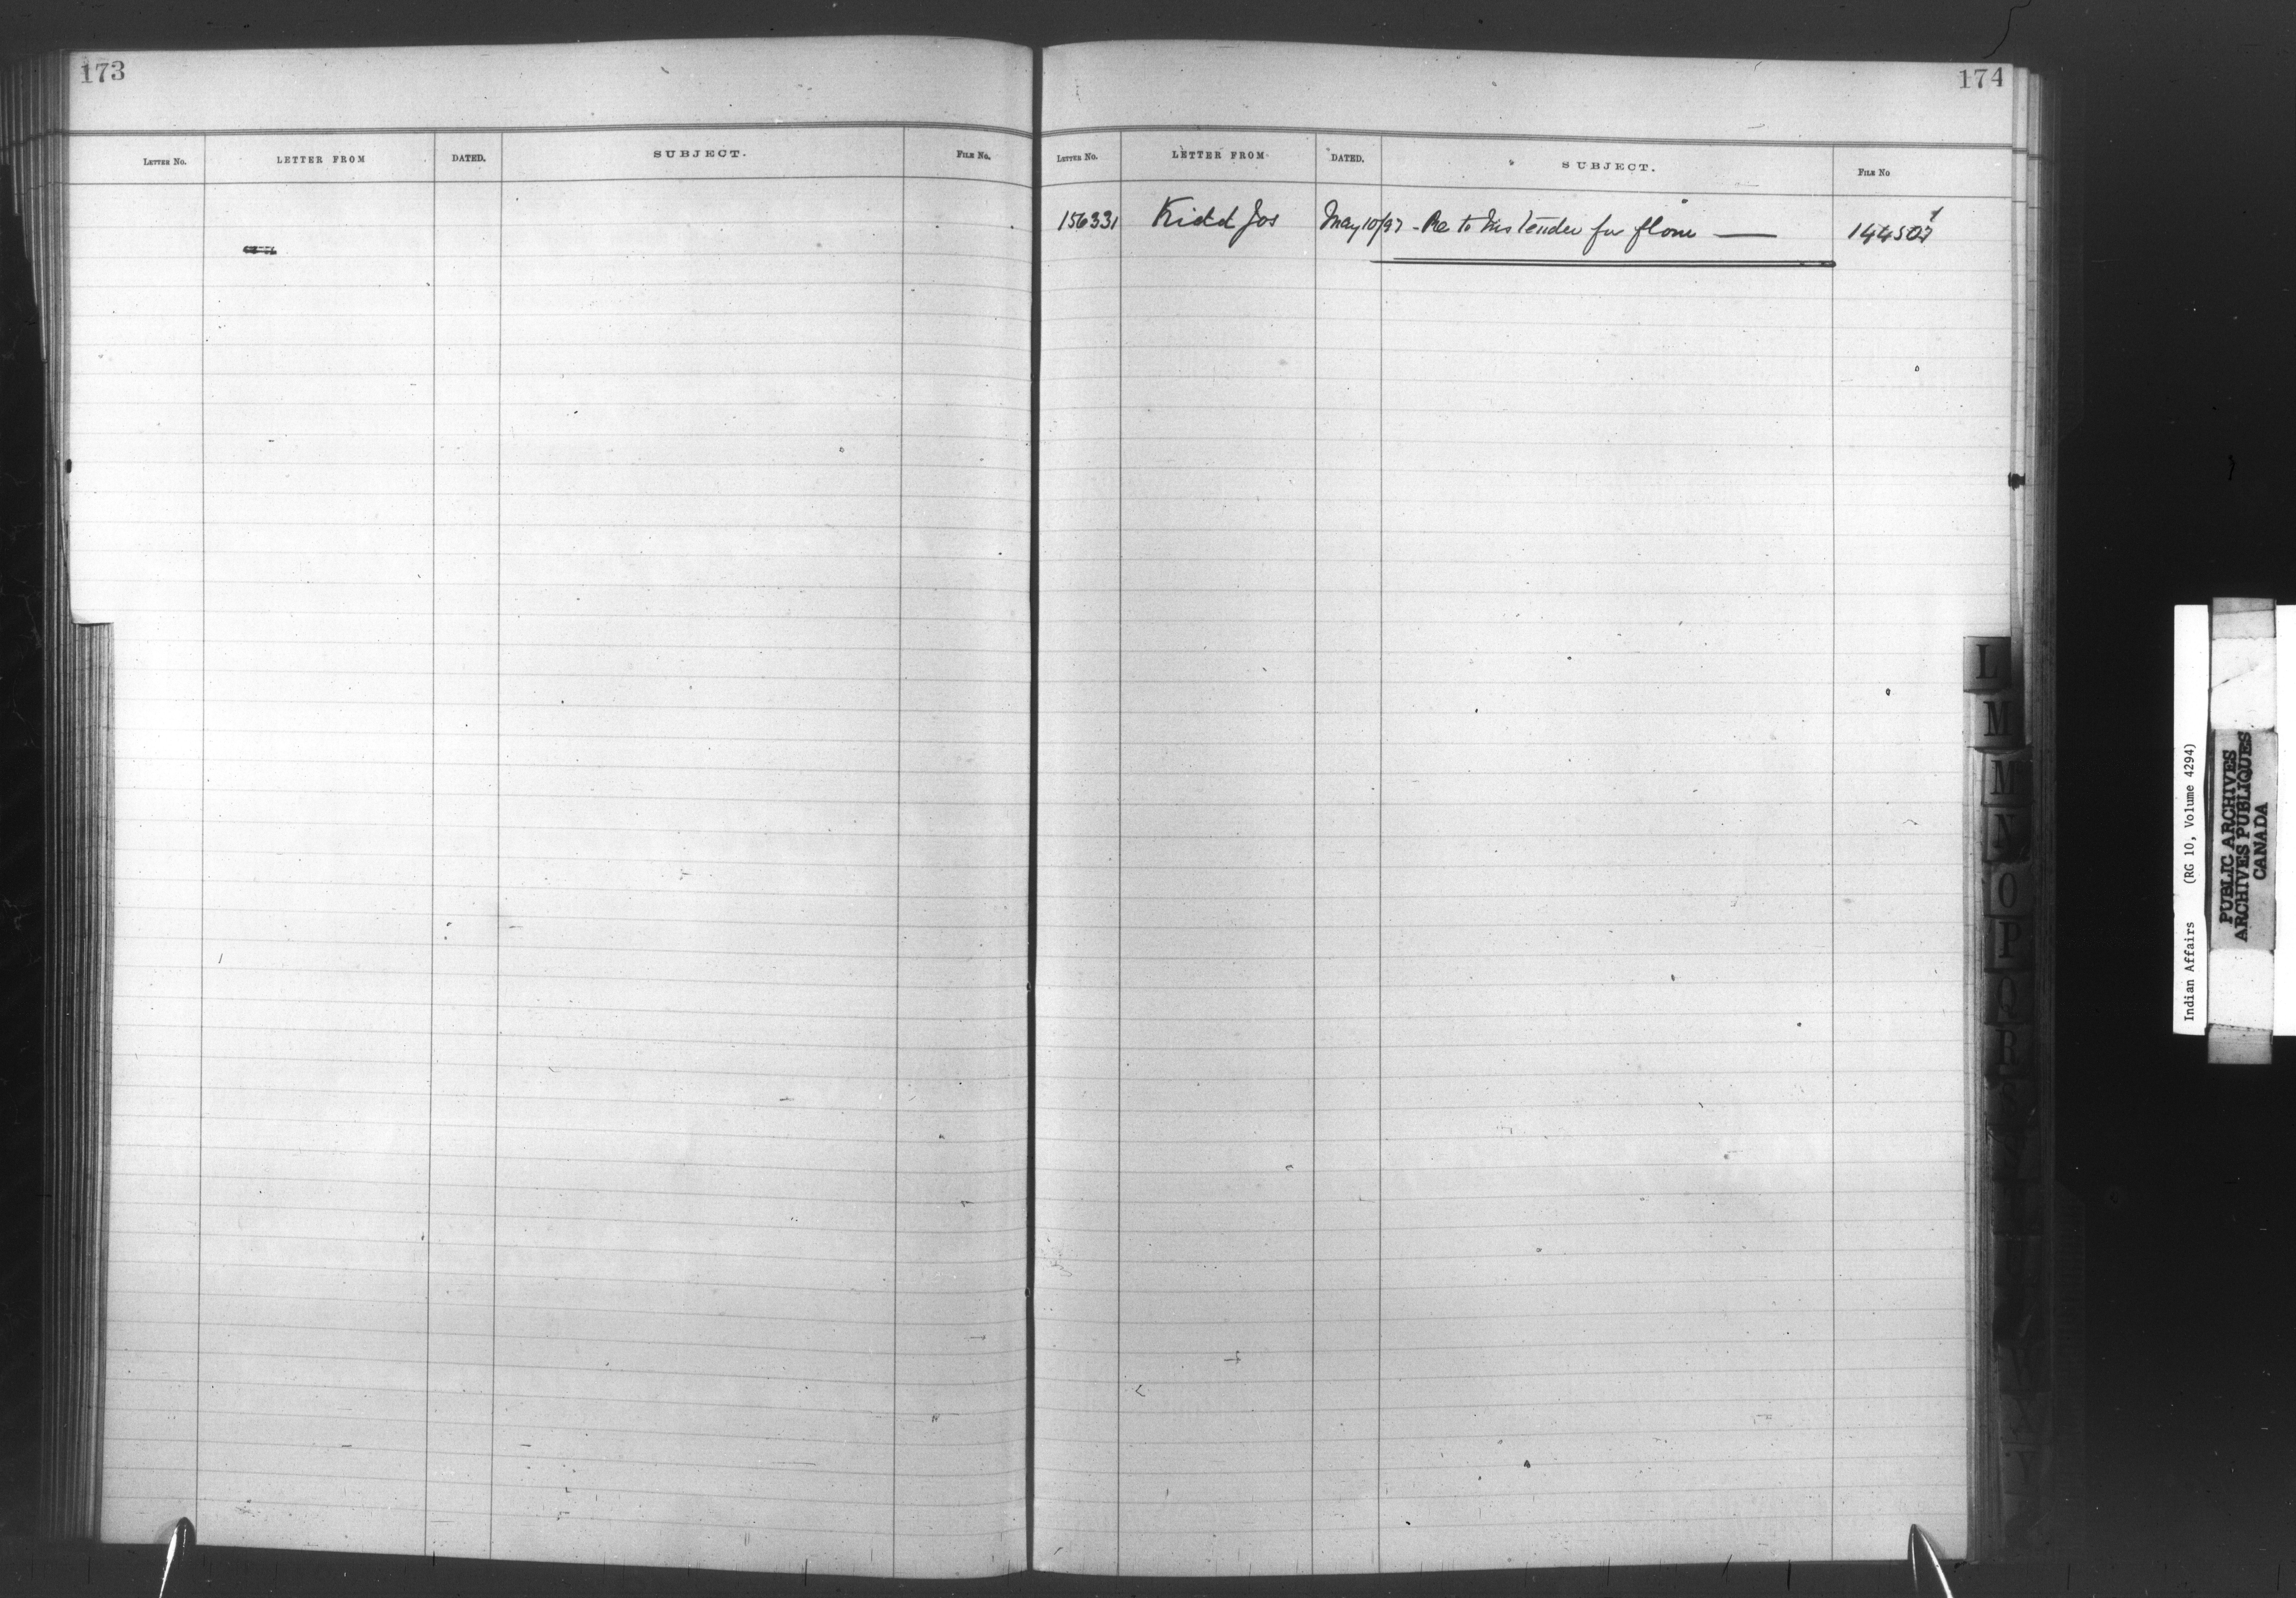 173
LETTER No. LETTER FROM DATED. SUBJECT. FILE No.
174
LETTER No. LETTER FROM DATED. SUBJECT. FILE No
156331 Kidd Jos May 10/97 - Re to his tender for flour — 144507
L
M
Mc
N
O
P
Q
R
S
T
U
W
Y
Indian Affairs (RG 10, Volume 4294)
PUBLIC ARCHIVES
ARCHIVES PUBLIQUES
CANADA